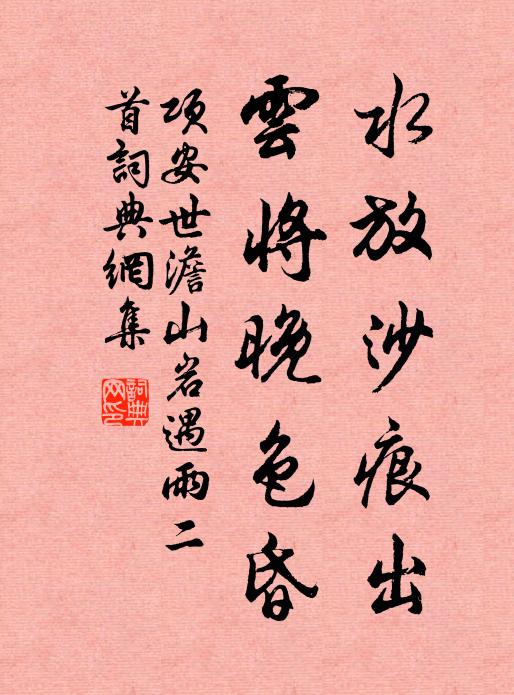 水放沙痕出
雲將晚色昏
項安世澹山岩遇雨二
首詞典網集
詞典
网印